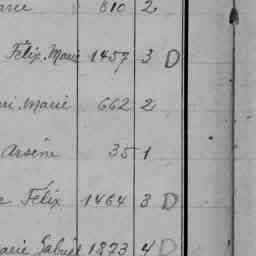 arie 810 2
Félix Marie 1457 3 D
ri Marie 662 2
Arsène 35 1
e Félix 1464 3 D
arie Gabriel 1873 4 D